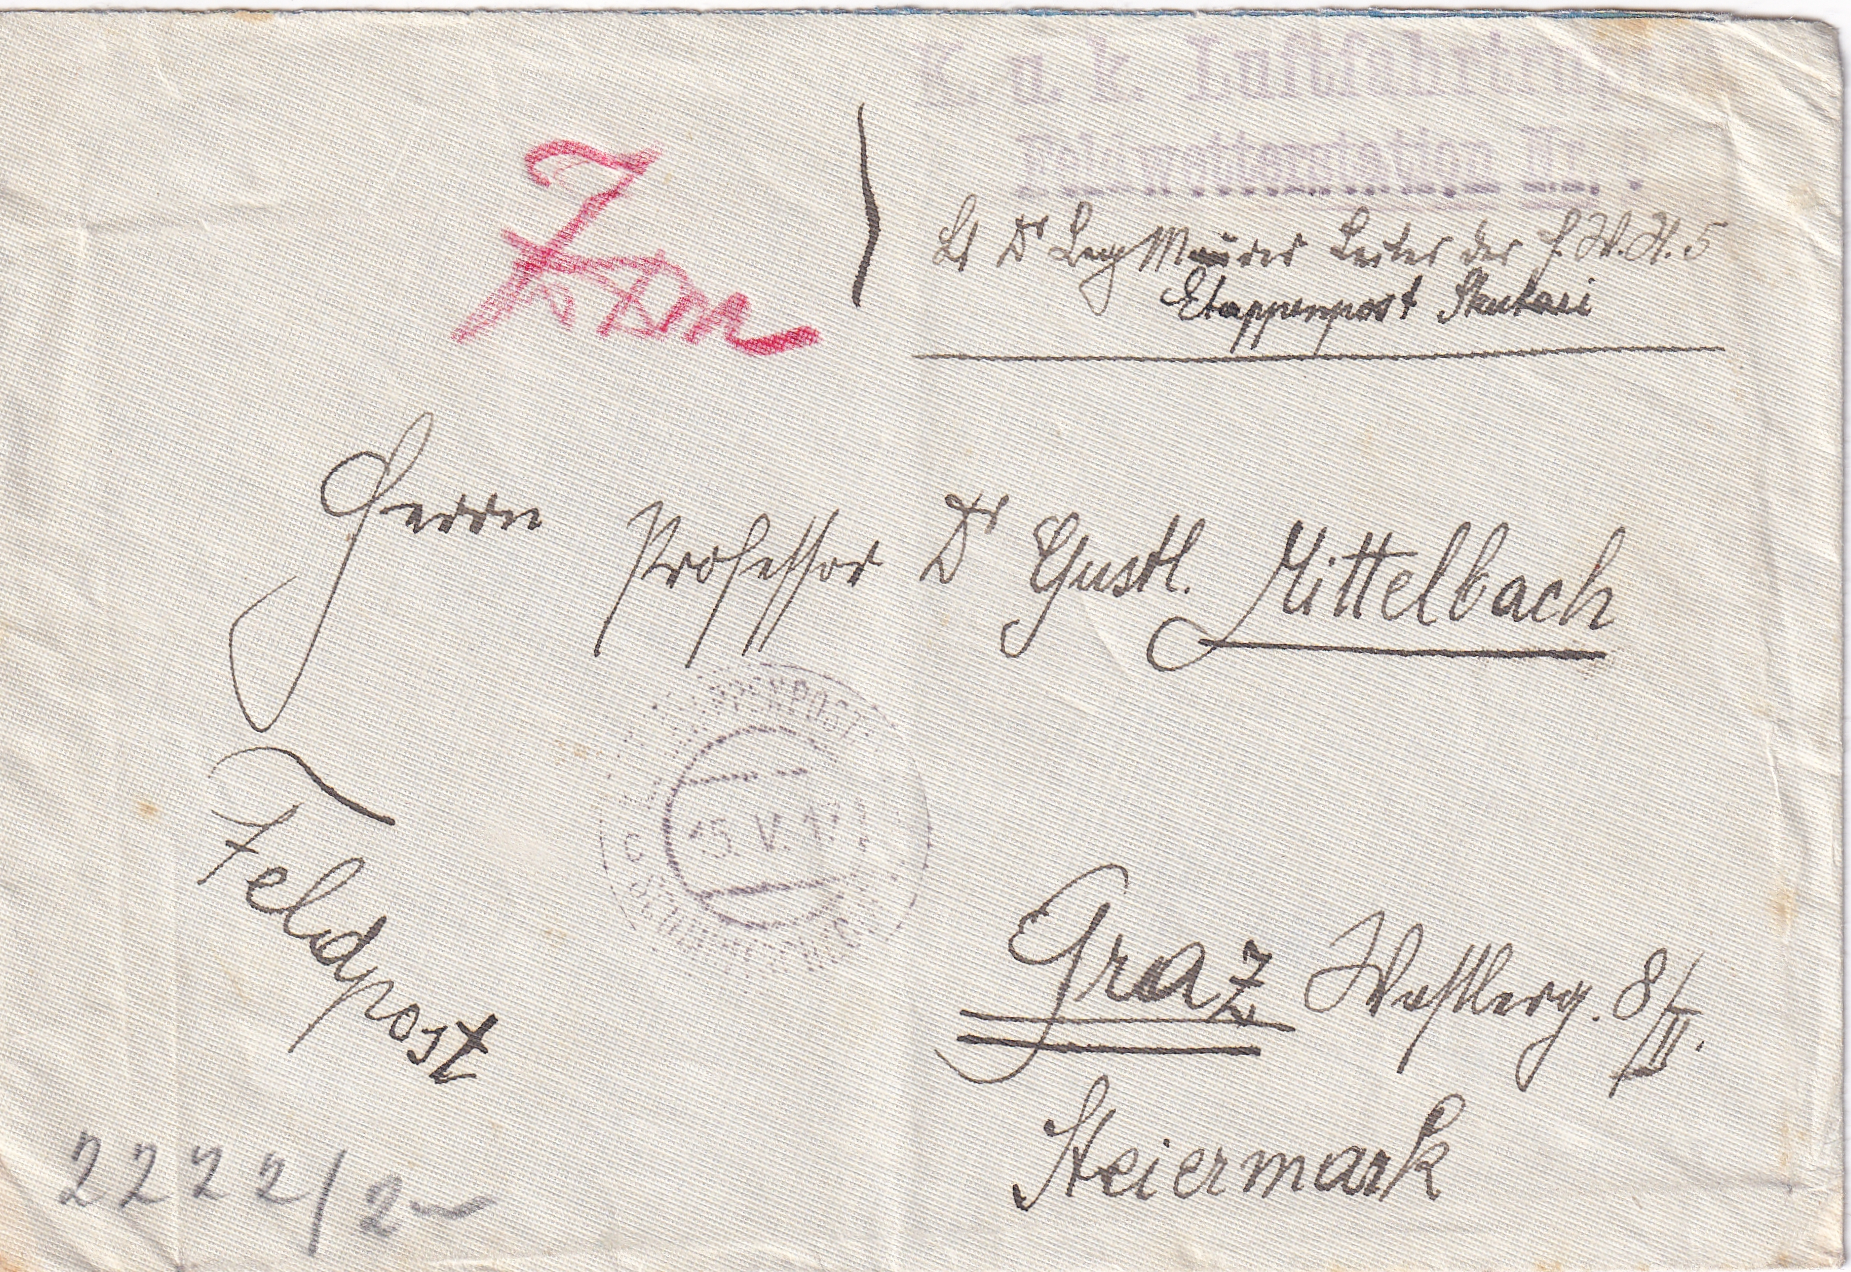 K. u. k. Luftfahrtrupp
Feldwetterstation Nr. 5
Lt Dr Leiter der F. W. St. 5
Etappenpost Skutari
Herrn Professor Dr Gustl. Mittelbach
ETAPPENPOST
C 15. V. 17
Feldpost
Graz Wastlerg. 8/III.
Steiermark
2222/2